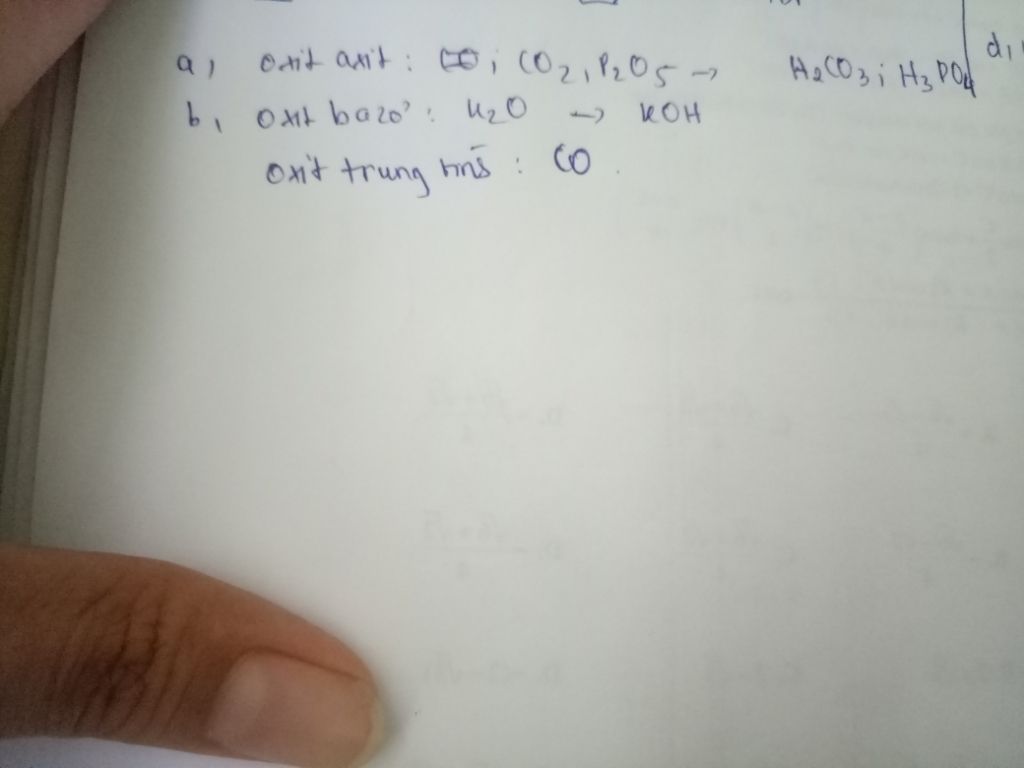 a, oxit axit : CO; CO2, P2O5 → H2CO3; H3PO4
b, oxit bazơ : K2O → KOH
oxit trung tính : CO.
d,